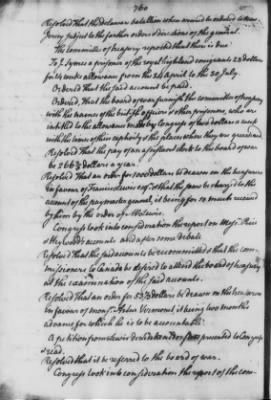 760
Resolved That the Delaware battalion when armed be ordered to New
Jersey subject to the farther orders & directions of the general.
The committee of treasury reported that there is due
To J. Symes a prisoner of the royal highland emigrants 28 dollars
for 14 weeks allowance from the 24 april to the 30 July.
Ordered That the said account be paid.
Ordered, That the board of war furnish the committee of treasury
with the names of the british officers & other prisoners, who are
intitled to the allowance by Congress of two dollars a week
with the times of their captivity & the places where they are quartered
Resolved That the pay of an assistant clerk to the board of war
be 266⅔ dollars a year.
Resolved That an order for 5000 dollars be drawn on the treasurers
in favour of Francis Lewis esqr. & that the same be charged to the
account of the paymaster general, it being for so much received
by him by the order of
Congress took into consideration the report on Messrs. Price
& Heywood's accounts and after some debate
Resolved That the said accounts be recommitted & that the com-
missioners to Canada be desired to attend the board of treasury
at the examination of the said accounts.
Resolved That an order for 53⅓ dollars be drawn on the treasurers
in favour of monsr. John Vermonet, being two months
advance for which he is to be accountable.
A petition from Lewis presented to Congress
& read.
Resolved That it be referred to the board of war.
Congress took into consideration the report of the com-